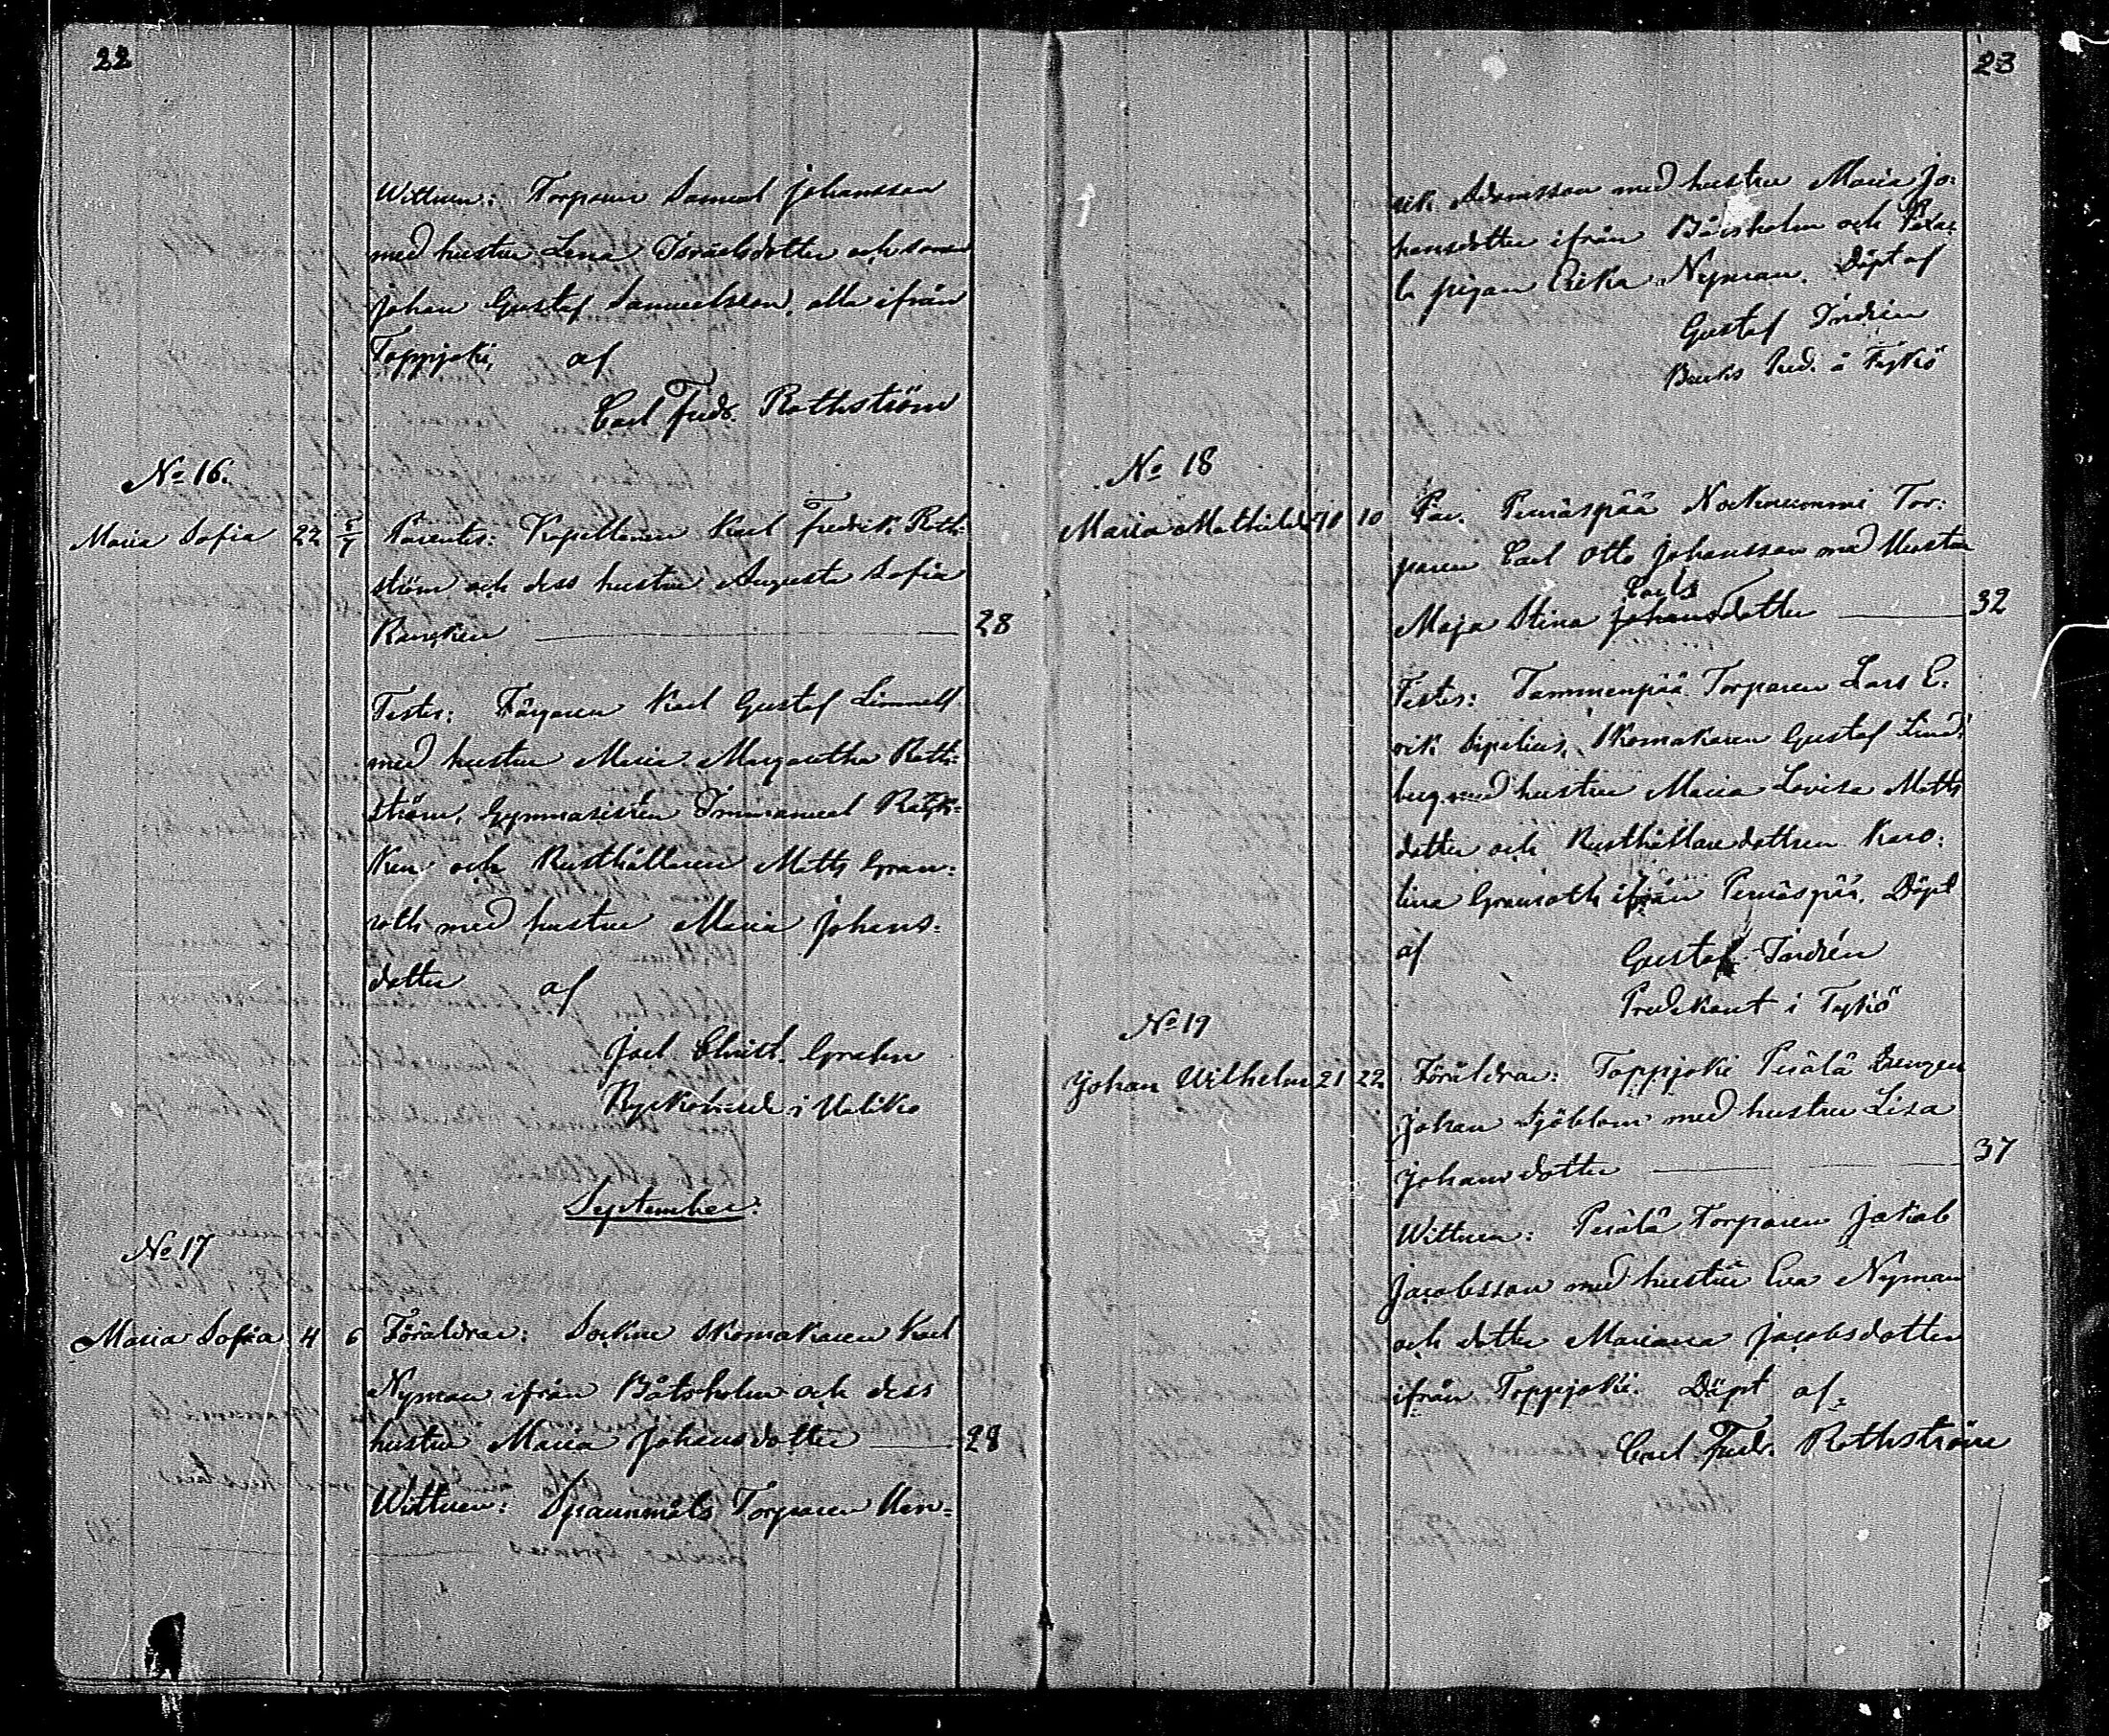 22
Wittnen: Torparen Samuel Johansson
med hustru Lena Israelsdotter och sonen
Johan Gustaf Samuelsson, alla ifrån
Toppjoki, af
Carl Fredr. Rothström
No 16.
Maria Sofia 22 5/7 Parentes: Kapellanen Karl Fredrik Roth:
ström och dess hustru Augusta Sofia
Rancken 28
Testes: Färgaren Karl Gustaf Limnell
med hustru Maria Margaretha Roth:
ström, Gymnasisten Immanuel Ranc:
ken och Rusthållaren Matts Gran:
roth med hustru Maria Johans:
dotter af
Joel Christ. Grahn
i Uskela
September.
No 17
Maria Sofia 4 6 Föräldrar: Sockne skomakaren Karl
Nyman ifrån Båtsholm och dess
hustru Maria Johansdotter 28
Wittnen: Torparen Hen:
23
rik Adamsson med hustru Maria Jo:
hansdotter ifrån Båtsholm och
pigan Erika Nyman. Döpt af
Gustaf Tördén
Bruks Pred. å Tykö
No 18
Maria Mathilda 10 10 Par. Pernäspää Nokornummi Tor:
paren Carl Otto Johansson med Hustru
Carls
Maja Stina Johansdotter 32
Testes: Tammenpää Torparen Lars E:
rik Sipelius, Skomakaren Gustaf Lind:
berg med hustru Maria Lovisa Matts
dotter och Rusthållare dottren Karo:
lina Granroth ifrån Pernäspää. Döpt
af Gustaf Tördén
Predikant i Tykö
No 19
Johan Wilhelm 21 22 Föräldrar: Toppjoki Perälä Drengen
Johan Sjöblom med hustru Lisa
Johansdotter 37
Wittnen: Perälä Torparen Jakob
Jacobsson med hustru Eva Nyman
och dotter Mariana Jacobsdotter
ifrån Toppjoki. Döpt af
Carl Fredr. Rothström